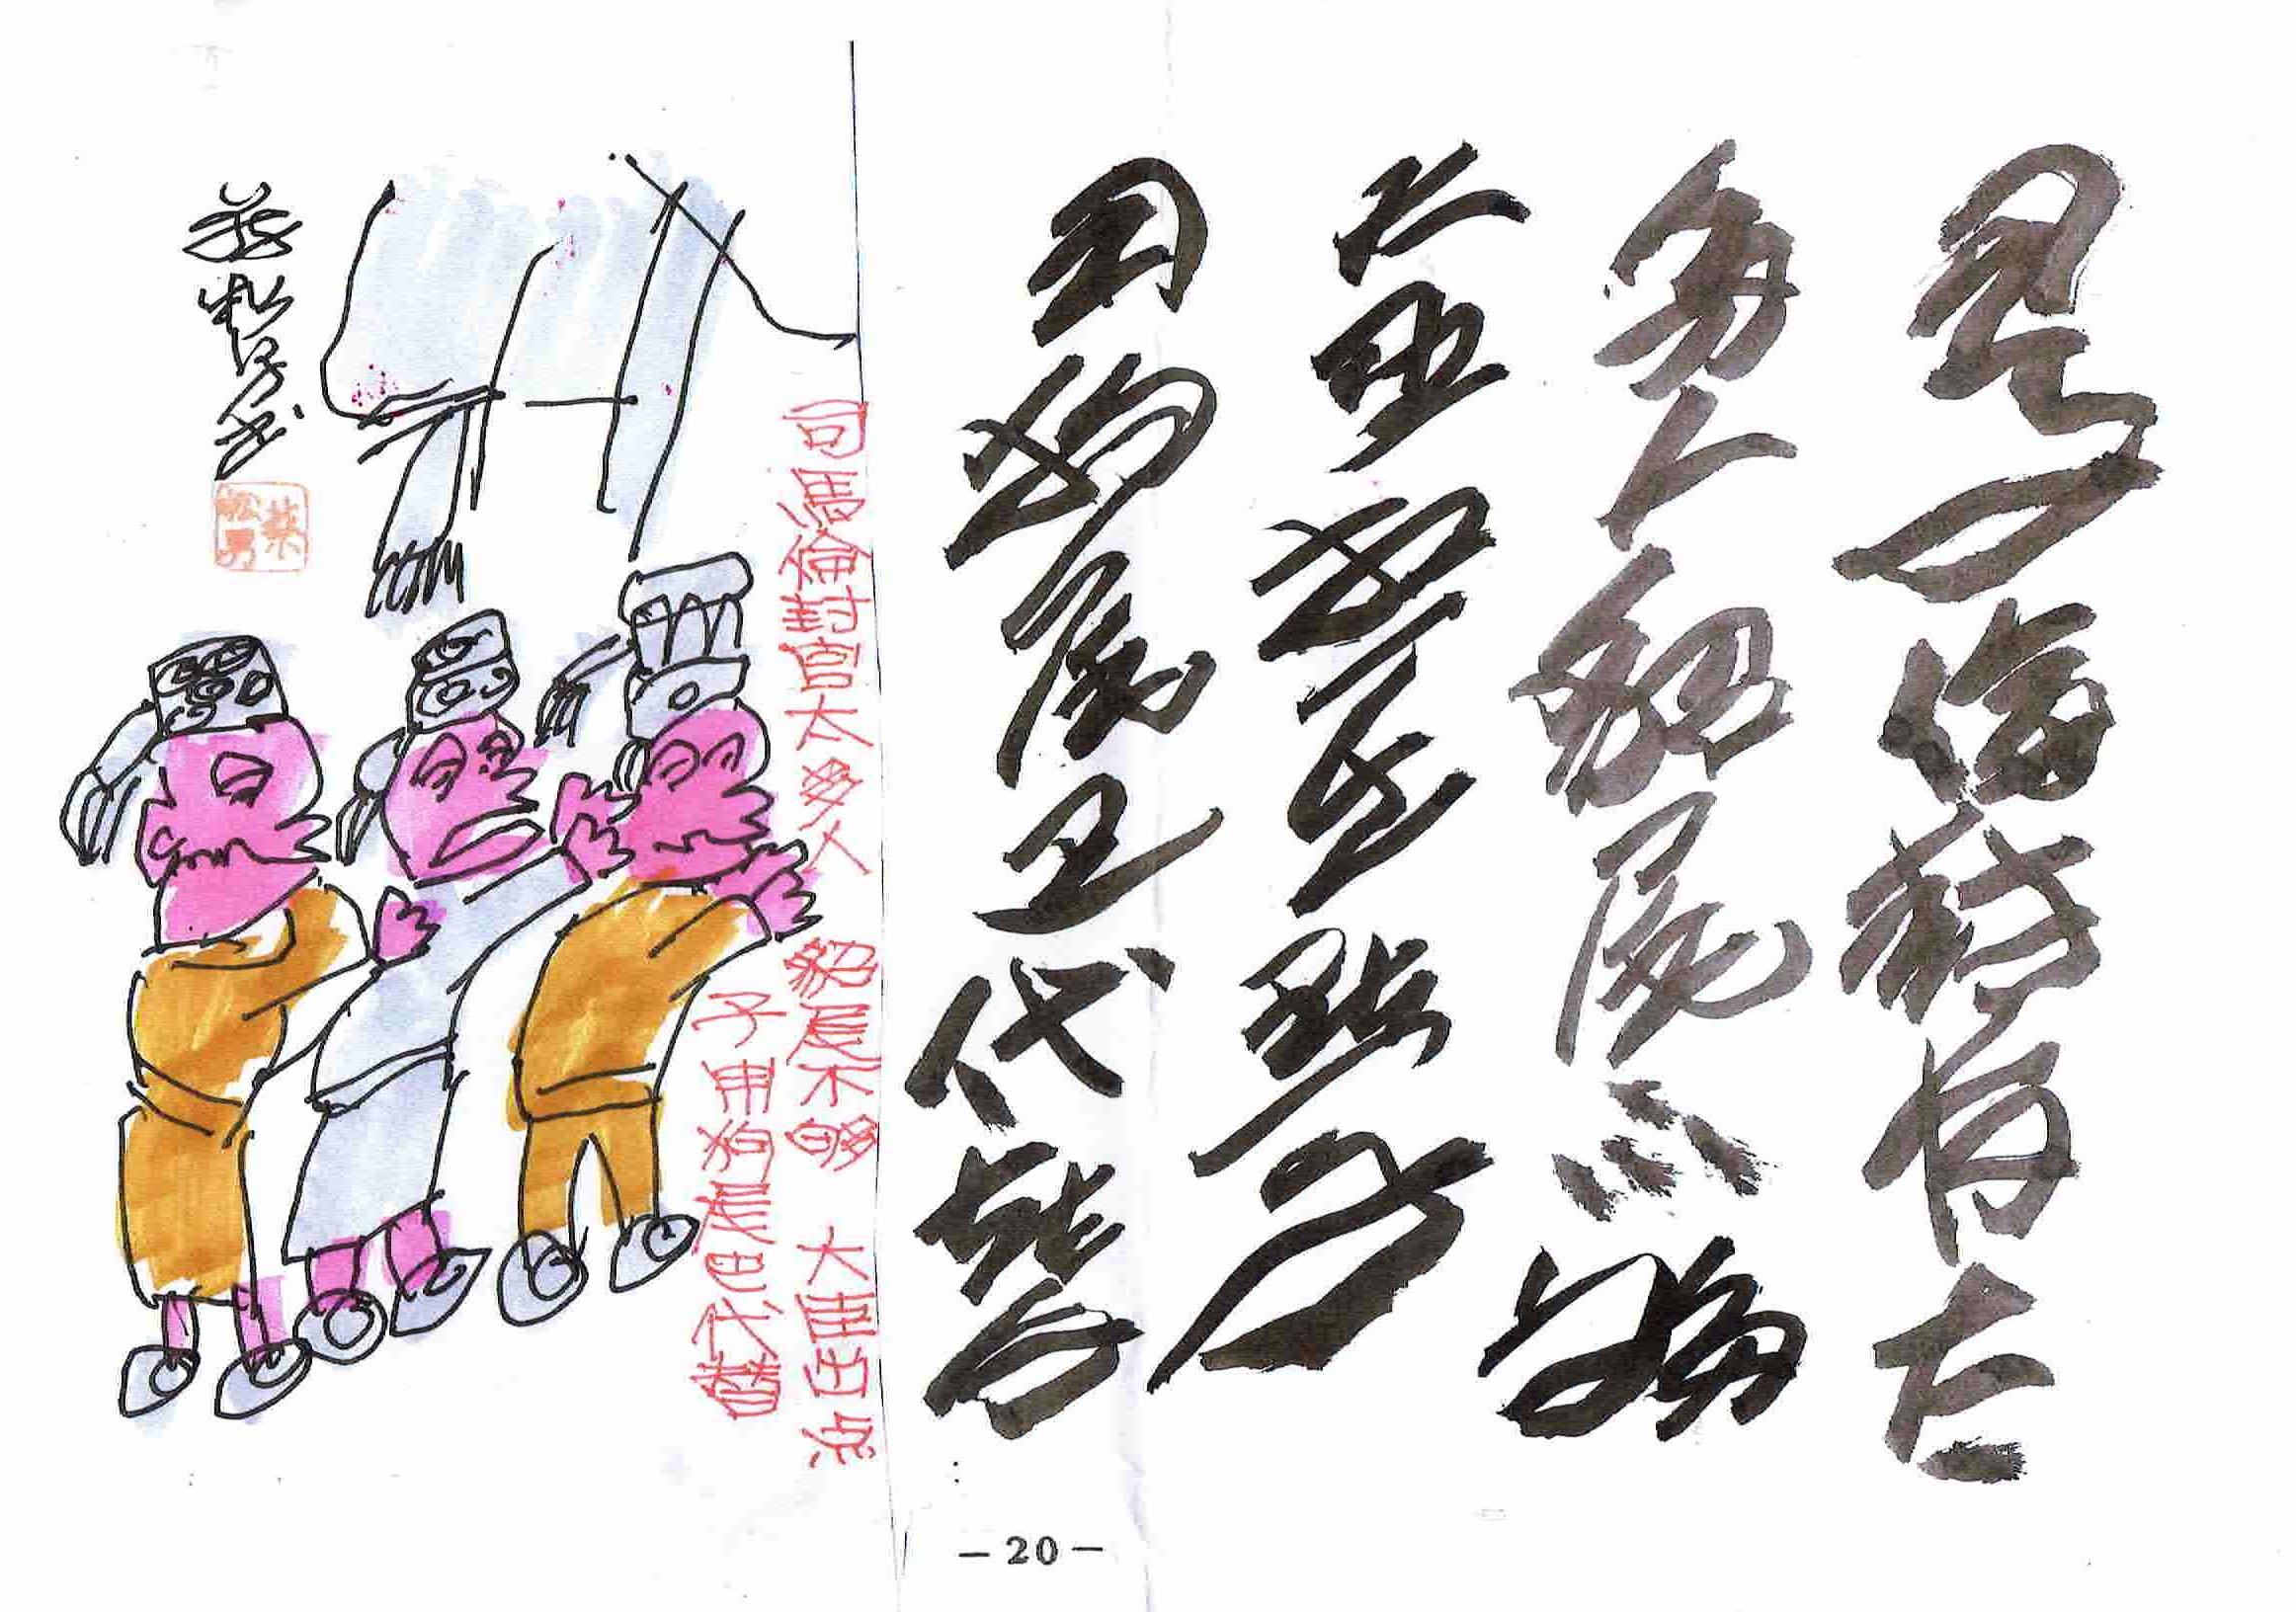 司马倫封官太
多人貂尾不够
大臣 出點子
用狗尾巴代替
司馬倫封官太多人 貂尾不够 大臣出点
子用狗尾巴代替
蔡松男书
蔡松男
— 20 —